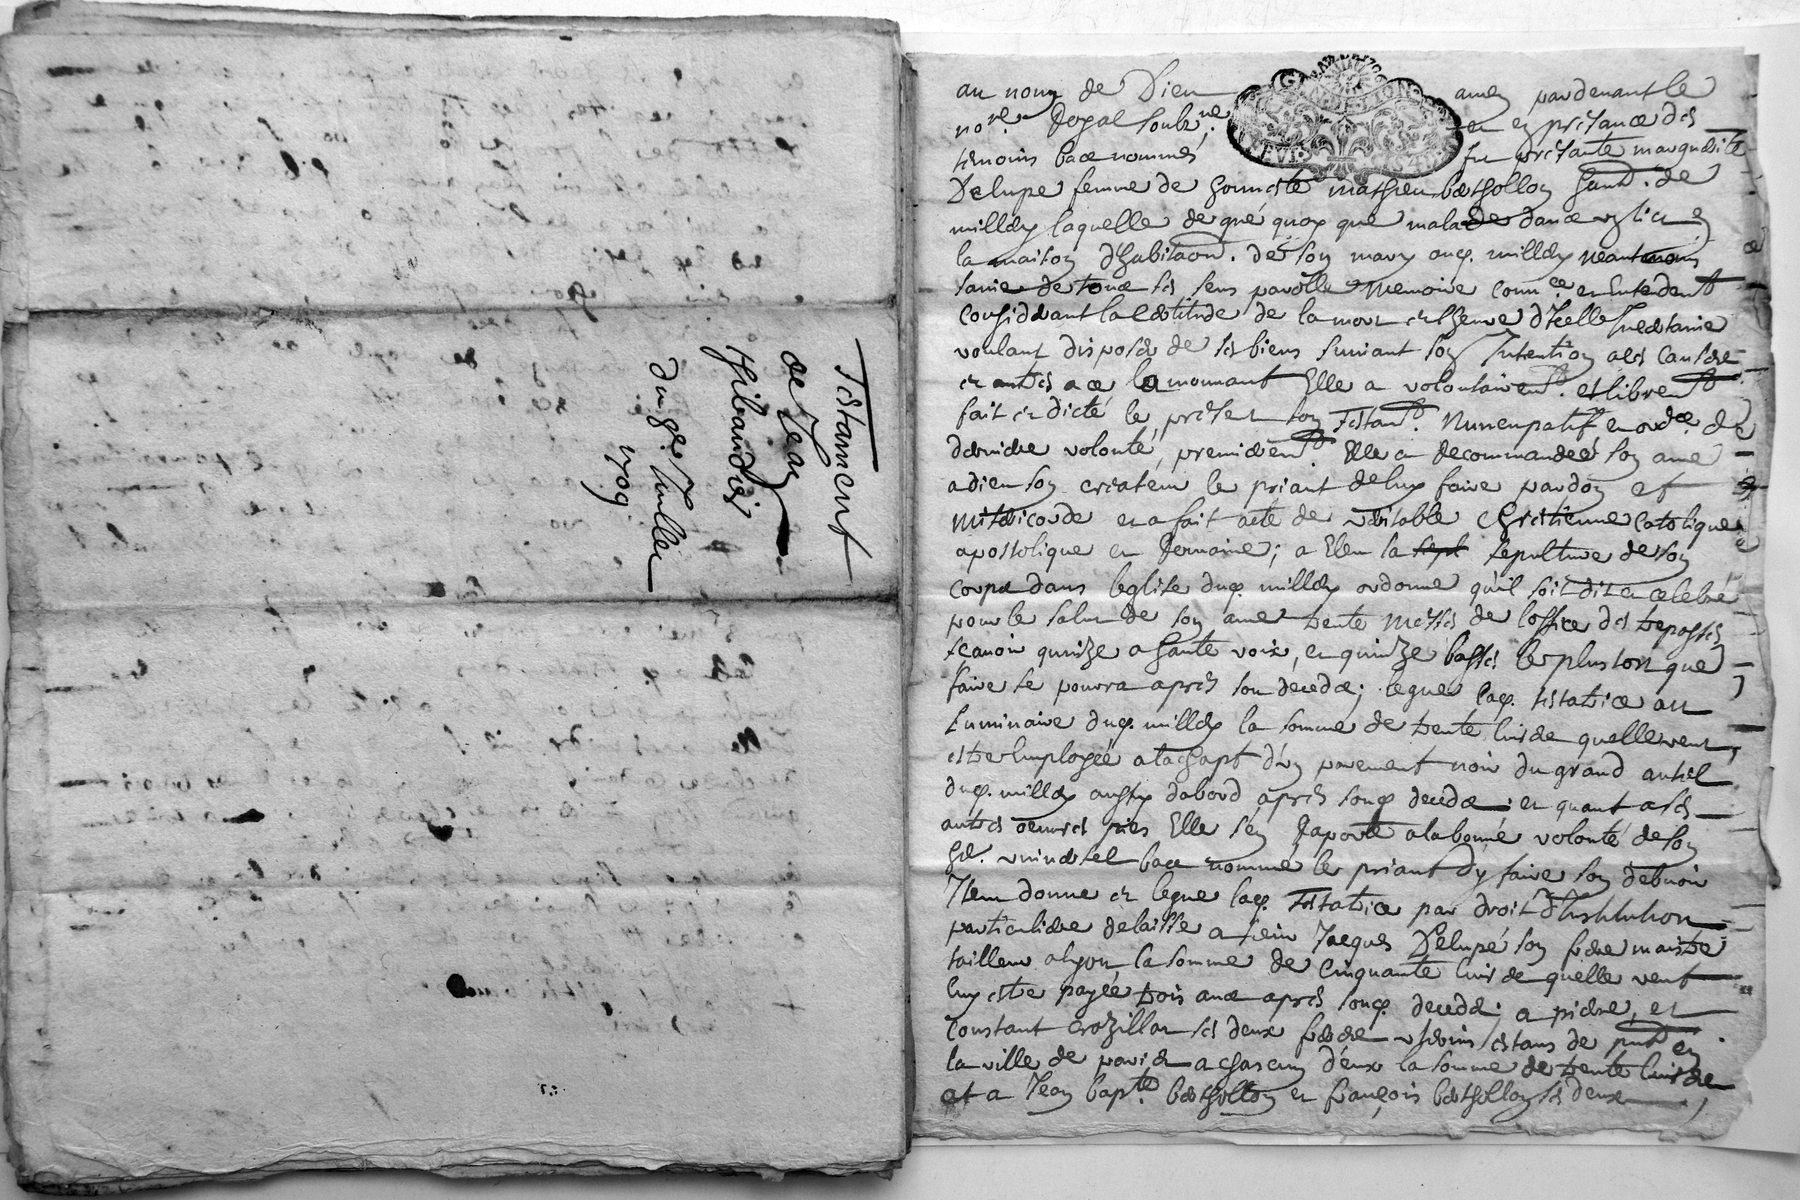 Testament
de Jean
thibaudier
du 9e Juillet
1709
au nom de Dieu amen pardevant le
nore. Royal soubzne. et en presance des
temoins bas nommés fut presante marguerite
Delupé femme de honneste mathieu berthollon hant. de
millery laquelle de gré quoy que malade dans un lict en
la maison d'habitaon. de son mary aud. millery neantmoins
saine de tous ses sens parolle memoire connce et Entendent
considerant la certitude de la mort et l'heure d'Icelle Incertaine
voulant disposer de ses biens suivant son Intention a ces causes
et autres a ce la mouvant Elle a volontairent. et librent
fait et dicté le present son Testant. Nuncupatif et ordce. de
derniere volonté, premierent Elle a Recommandée son ame
a dieu son createur le priant de luy faire pardon et
misericorde et a fait acte de veritable chrestienne catolique
apostolique et Romaine; a Eleu la sepulture de son
corps dans leglise dud. millery ordonne qu'il soit dit et celebré
pour le salut de son ame trente messes de l'office des trepassés
scavoir quinze a haute voix, et quinze basses le plustost que
faire se pourra apres son decedz; legue lad. testatrice au
Luminaire dud. millery la somme de trente livres quelle veut
estre Employée a lachapt d'un parement noir du grand autel
dud. millery aussy dabord apres sond. decedz; et quant a ses
autres oeuvres pies Elle s'en Raporte a la bonne volonté de son
her. universel bas nommé le priant d'y faire son debvoir
Item donne et legue lad. Testatrice par droit d'Institution
particuliere delaisse a sieur Jacques Delupé son frere maistre
tailleur a lyon la somme de Cinquante livres quelle veut
luy estre payée trois ans apres sond. decedz; a pierre, et
Constant crozillon ses deux freres uterins estans de pnt en
la ville de paris a chascun d'eux la somme de trente livres
et a Jean bapte. berthollon et françois berthollon ses deux